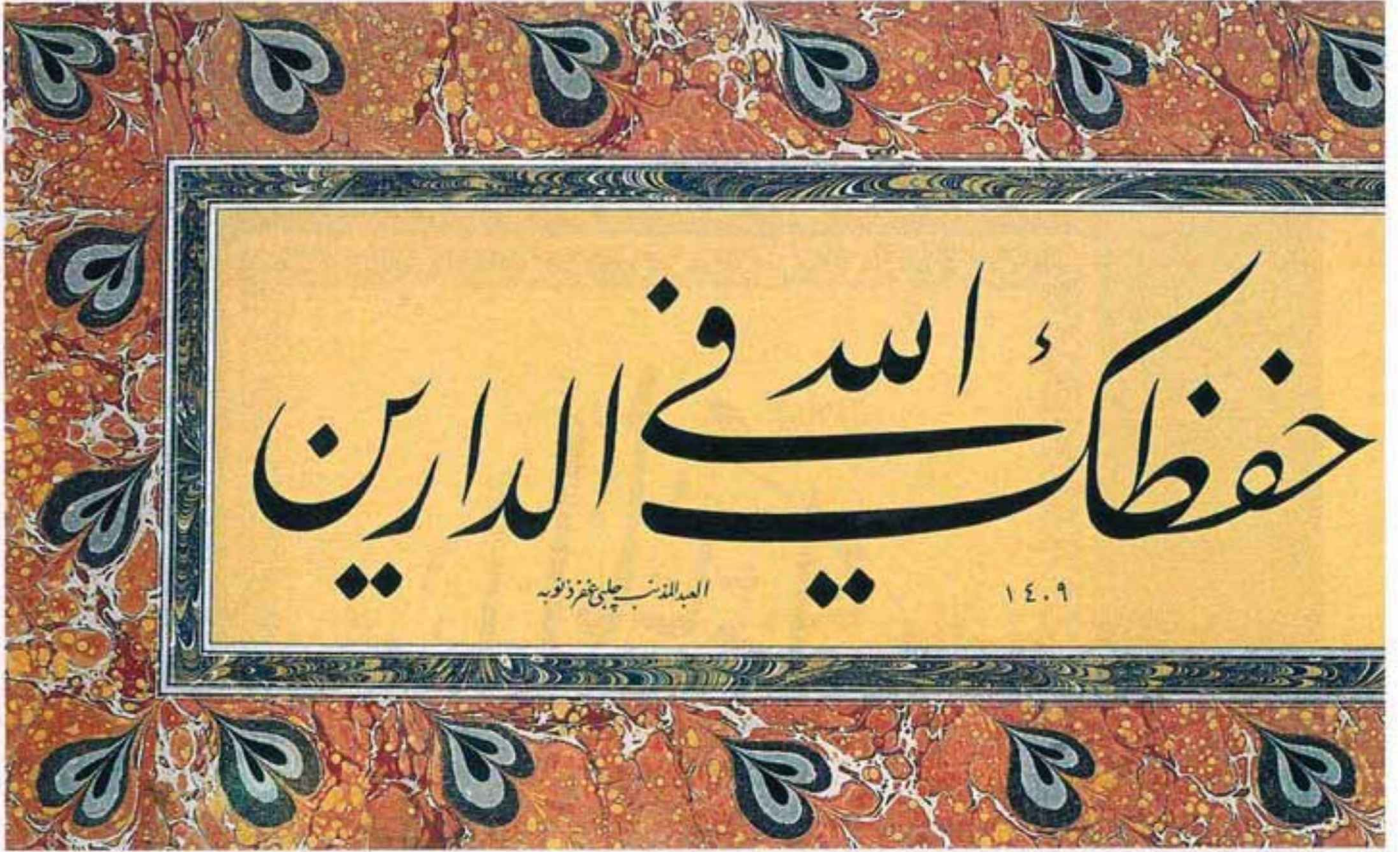 حفظك الله في الدارين
١٤٠٩
العبد المذنب چلبي غفر ذنوبه